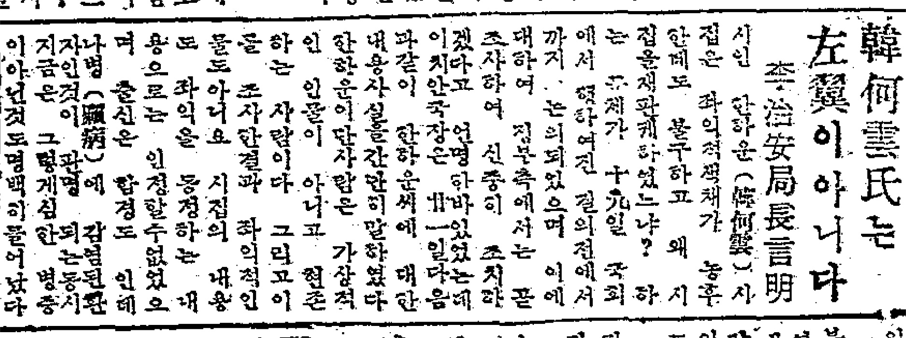 韓何雲氏는
左翼이아니다
李治安局長言明
시인 한하운(韓何雲) 시
집은 좌익적색채가 농후
한데도 불구하고 왜 시
집을재판케하였느냐? 하
는 문제가 十九일 국회
에서 행하여진 질의전에서
까지 논의되었으며 이에
대하여 정부측에서는 곧
조사하여 신중히 조치하
겠다고 언명한바있었는데
이치안국장은 廿一일다음
과같이 한하운씨에 대한
내용사실을간단히말하였다
한하운이란사람은 가상적
인 인물이 아니고 현존
하는 사람이다 그리고이
를 조사한결과 좌익적인
물도아니요 시집의 내용
도 좌익을 동정하는 내
용으로는 인정할수없었으
며 출신은 함경도 인데
나병(癩病)에 감염된환
자인것이 판명 되는동시
지금은 그렇게심한 병중
이아닌것도명백히들어났다